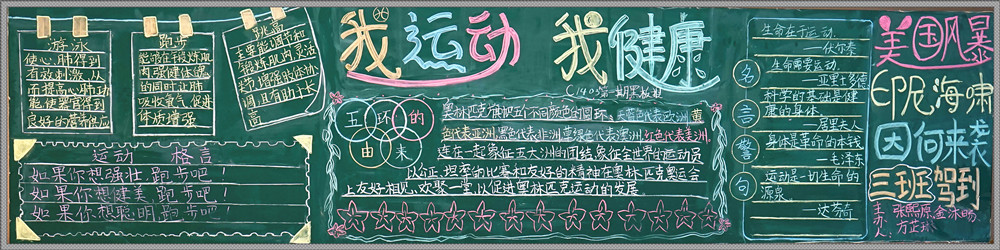 游泳
使心.肺得到
有效刺激.从
而提高心肺功
能.使器官得到
良好的营养供应
跑步
能够在于段炼肌
肉.强健体魄
的同时让肺
吸收氧气.促进
体质增强
跳高
主要能调节和
锻炼肌肉灵活
增强肢体协
调.且有助于长
运动 格言
如果你想强壮,跑步吧！
如果你想建美,跑步吧！
如果你想聪明,跑步吧
我运动 我健康
(1403第一期黑板报
五环的
由来
奥林匹克旗把五个不同颜色的圆环.天蓝色代表欧洲.黄
色代表亚洲.黑色代表非洲.草绿色代表澳洲.红色代表美洲.
连在一起象征五大洲的团结.象征全世界的运动员
以公正.坦率的比赛和友好的精神在奥林匹克奥运会
上友好相见.欢聚一堂.以促进奥林匹克运动的发展
名言警句
生命在于运动.
—伏尔泰
生命需要运动.
—亚里士多德
科学的基础是健
康的身体
—居里夫人
身体是革命的本钱
—毛泽东
运动是一切生命的
源泉
—达芬奇
美国风暴
印尼海啸
因何来袭
三班驾到